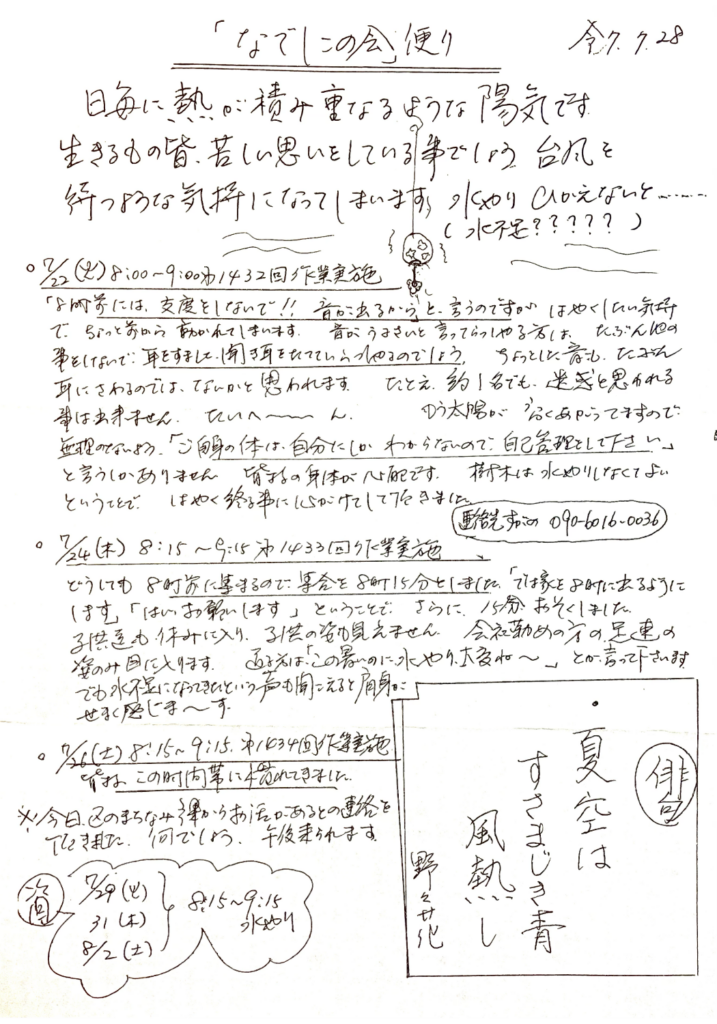 「なでしこの会」便り
令7.7.28
日毎に熱が積み重なるような陽気です
生きるもの皆、苦しい思いをしている事でしょう 台風を
待つような気持になってしまいます。水やり ひかえないと………
(水不足?????)
○ 7/22(火)8:00〜9:00 第1432回作業実施
「8時前には、支度をしないで!! 音が出るから」と、言うのですが はやくしたい気持
で、ちょっと前から動かれてしまいます。音がうるさいと言ってらっしゃる方は、たぶん他の
事をしないで、耳をすまし、聞き耳をたてていらっしゃるのでしょう。ちょっとした音も、たぶん
耳にさわるのでは、ないかと思われます。たとえ、約1名でも、迷惑と思われる
事は出来ません。たいへ〜〜ん。もう太陽が るくあがってますので
無理のないよう、「ご自身の体は、自分にしかわからないので、自己管理をして下さい」
と言うしかありません 皆さまの身体が心配です。樹木は水やりしなくてよい
ということで、はやく終る事に心がけをして頂きました
連絡先 すがの 090-6016-0036
○ 7/24(木) 8:15〜9:15 第1433回作業実施
どうしても 8時前に集まるので、集合を8時15分としました。「では家を8時に出るように
します」「はい、お願いします」ということで さらに、15分おそくしました
子供達も休みに入り、子供の姿も見えません 会社勤めの方の足速の
姿のみ目に入ります。通る方は「この暑いのに、水やり、大変ね〜」とか言って下さいます
でも水不足になってきたという声も聞こえると肩身が
せまく感じま〜す
○ 7/26(土) 8:15〜9:15、第1434回作業実施
皆さん この時間帯に慣れてきました
※今日、区のまちなみ課からお話があるとの連絡を
頂きました 何でしょう 午後来られます
次回
7/29(火)
31(木)
8/2(土)
8:15〜9:15
水やり
俳句
・夏空は
すさまじき青
風熱し
野々花